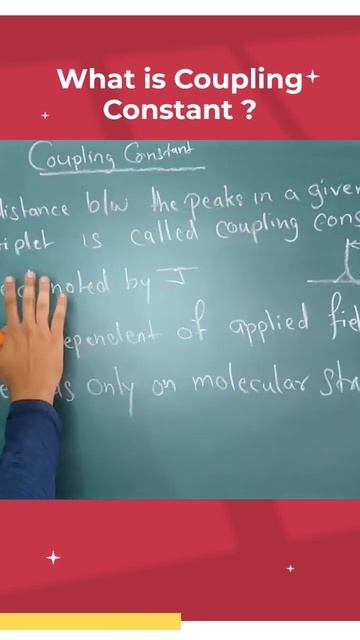 What is Coupling
Constant ?
Coupling Constant
distance b/w the peaks in a given
iplet is called coupling cons
noted by J
ependent of applied fie
only on molecular stru